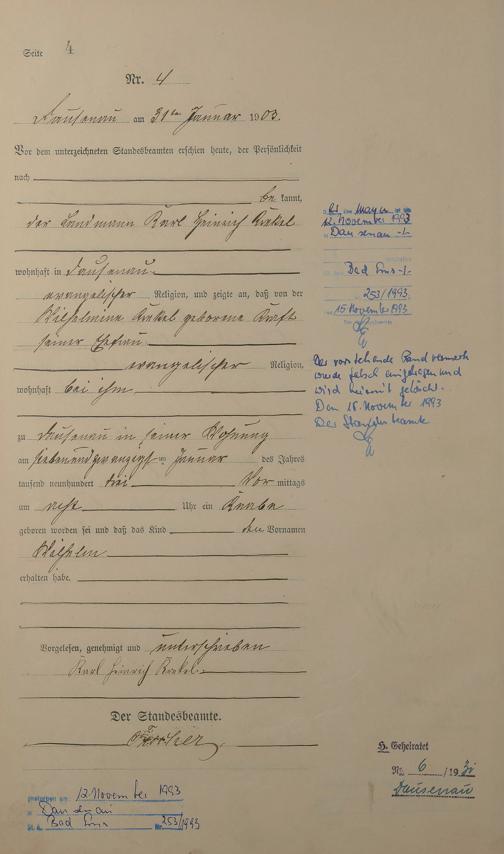 Seite 4
Nr. 4
Dausenau am 31ten Januar 1903.
Vor dem unterzeichneten Standesbeamten erschien heute, der Persönlichkeit
nach
bekannt,
der Landmann Karl Heinrich Kunkel
wohnhaft in Dausenau
evangelischer Religion, und zeigte an, daß von der
Wilhelmine Kunkel geborene Kraft
seiner Ehefrau
evangelischer Religion,
wohnhaft bei ihm
zu Dausenau in seiner Wohnung
am siebenundzwanzigsten Januar des Jahres
tausend neunhundert drei Vor mittags
um acht Uhr ein Knabe
geboren worden sei und daß das Kind den Vornamen
Wilhelm
erhalten habe.
Vorgelesen, genehmigt und unterschrieben
Karl Heinrich Kunkel
Der Standesbeamte.
12. November 1993
Dausenau -/-
Bad Ems -/-
253/1993
15. November 1993
Der vorstehende Randvermerk
wurde falsch eingetragen und
wird hiermit gelöscht.
Den 18. November 1993
Der Standesbeamte
H. Geheiratet
Nr. 6 /1931
Dausenau
gestorben am 12. November 1993
in Dausenau
St. A. Bad Ems Nr. 253/1993